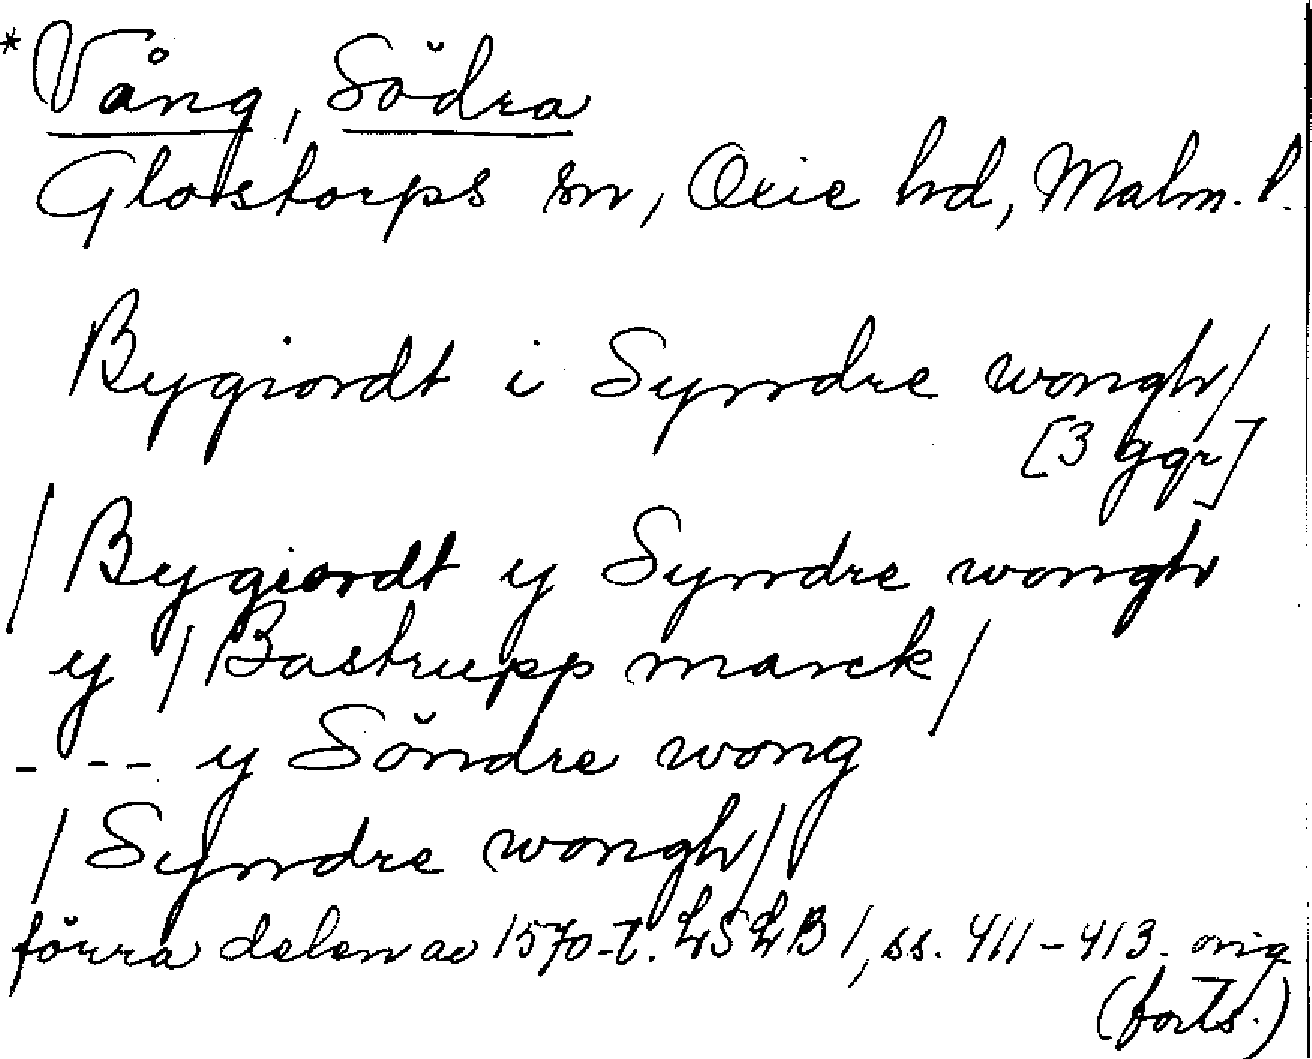 *Vång, Södra
Glostorps sn, Oxie hd, Malm. l.
Bygiordt i Syndre wongh/
[3 ggr]
/Bygiordt y Syndre wongh
y /Bastrupp marck/
- - - y Söndre wong
/Syndre wongh/
förra delen av 1570-t. LSLB 1, ss. 411-413. orig
(forts.)